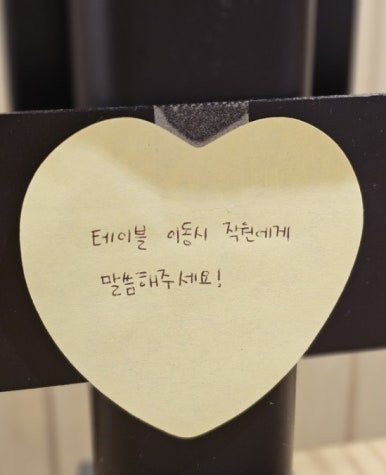 테이블 이동시 직원에게
말씀해주세요!